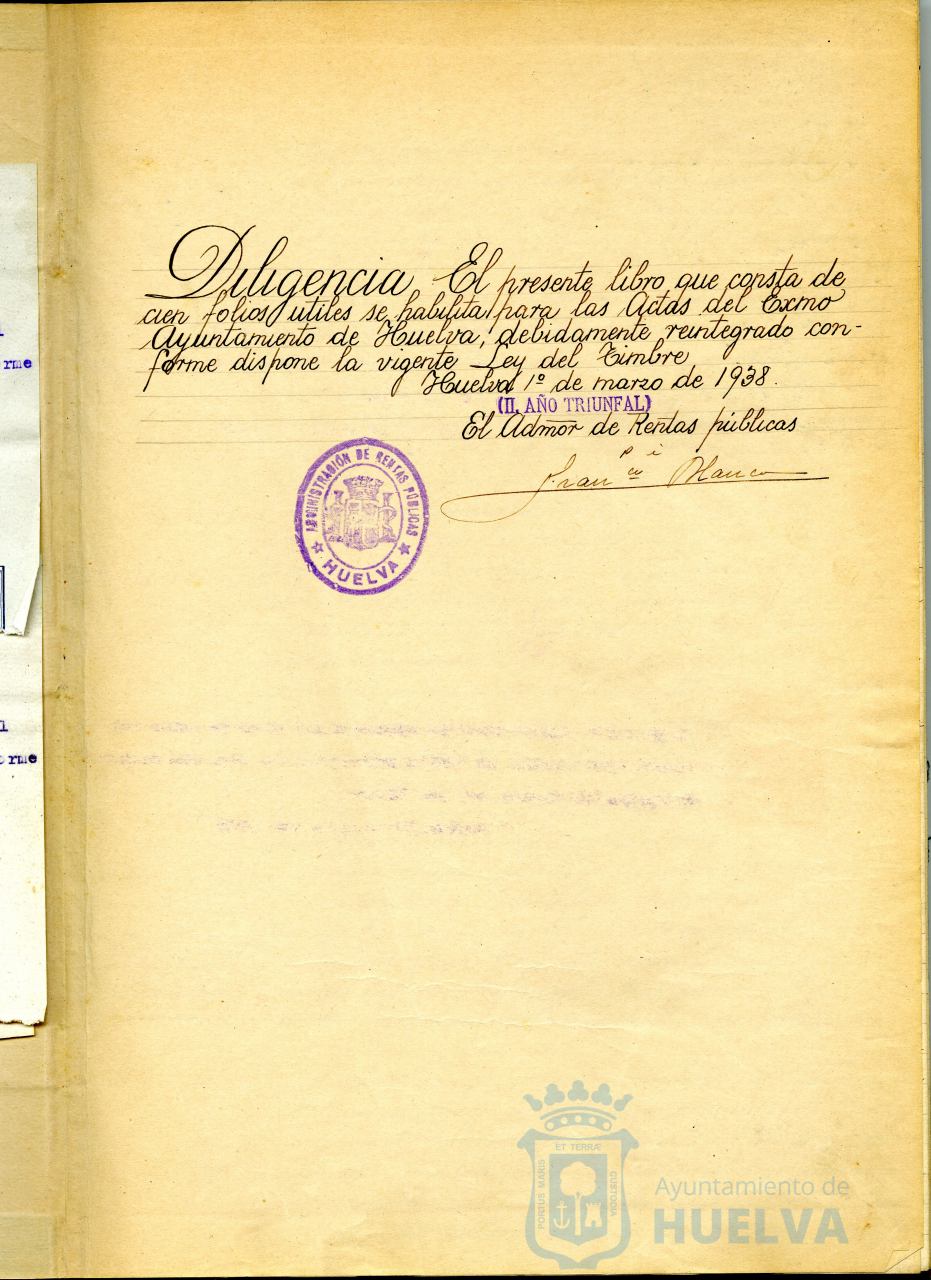 Diligencia El presente libro, que consta de
cien folios utiles se habilita para las Actas del Exmo
Ayuntamiento de Huelva, debidamente reintegrado con-
forme dispone la vigente Ley del Timbre
Huelva 1º de marzo de 1938.
(II. AÑO TRIUNFAL)
El Admor de Rentas públicas
p i
Franco Blanco
ADMINISTRACIÓN DE RENTAS PÚBLICAS
HUELVA
rme
orme
ET TERRÆ
PORTUS MARIS
CUSTODIA
Ayuntamiento de
HUELVA